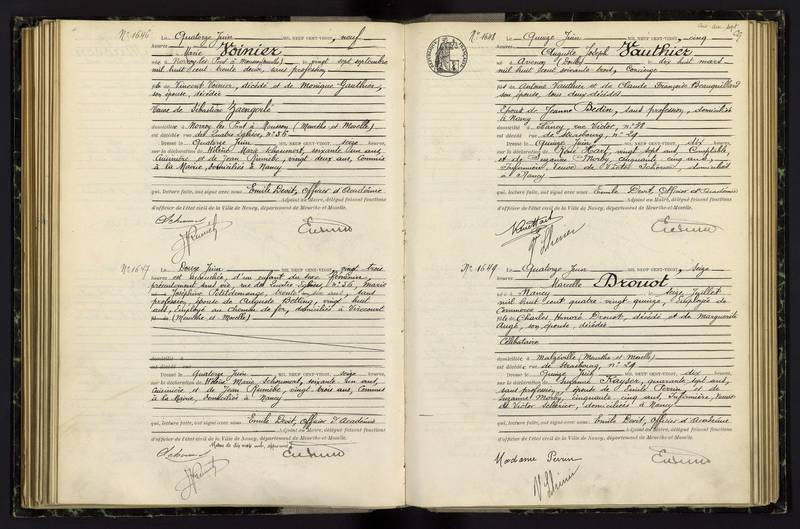 N° 1646 Le Quatorze Juin mil neuf cent vingt, neuf
heures Marie Voinier
née à Norroy les Pont à Mousson (Meurthe) le vingt sept septembre
mil huit cent trente deux, sans profession
fille de Vincent Voinier, décédé et de Monique Gauthier,
son épouse, décédée
Veuve de Sébastien
domiciliée à Norroy les Pont à Mousson (Meurthe et Moselle)
est décédée rue des Quatre Eglises, n° 36
Dressé le Quatorze Juin seize heures
sur la déclaration de Marie soixante un ans,
Cuisinière et de Jean vingt deux ans, Commis
à la Mairie, domiciliés à Nancy
qui, lecture faite, ont signé avec nous Emile Devit, Officier d'Académie
Adjoint au Maire, délégué faisant fonctions
d'officier de l'état civil de la Ville de Nancy, département de Meurthe-et-Moselle.
N° 1647 Le Douze Juin mil neuf cent vingt, vingt trois
heures est accouchée, d'un enfant du sexe féminin,
précédemment sans vie, rue des Quatre Eglises, n° 36, Marie
Joséphine trente six ans, sans
profession, épouse de Auguste Botting, vingt huit
ans, Employé au chemin de fer, domiciliés à
(Meurthe et Moselle)
domicilié à
est décédé
Dressé le Quatorze Juin seize heures
sur la déclaration de Marie soixante un ans,
Cuisinière et de Jean vingt trois ans, Commis
à la Mairie, domiciliés à Nancy
qui, lecture faite, ont signé avec nous Emile Devit, Officier d'Académie
Adjoint au Maire, délégué faisant fonctions
d'officier de l'état civil de la Ville de Nancy, département de Meurthe-et-Moselle.
N° 1648 Le Quinze Juin mil neuf cent vingt, cinq
heures Auguste Joseph Vauthier
né à Avenay (Doubs) le dix huit mars
mil huit cent soixante trois, Concierge
fils de Antoine Vauthier et de Claude Françoise
son épouse, tous deux décédés
Epoux de Jeanne Bedin, sans profession, domiciliée
à Nancy
domicilié à Nancy, rue Victor, n° 38
est décédé rue de Strasbourg, n° 29
Dressé le Quinze Juin dix heures
sur la déclaration de vingt sept ans, Comptable
et de Suzanne Morby, cinquante cinq ans,
Infirmière, Veuve de Victor domiciliés
à Nancy
qui, lecture faite, ont signé avec nous Emile Devit, Officier d'Académie
Adjoint au Maire, délégué faisant fonctions
d'officier de l'état civil de la Ville de Nancy, département de Meurthe-et-Moselle.
N° 1649 Le Quatorze Juin mil neuf cent vingt, seize
heures Marcelle Drouot
née à Nancy le seize Juillet
mil huit cent quatre vingt quinze, Employée de
Commerce
fille de Charles Honoré Drouot, décédé et de Marguerite
Augé, son épouse, décédée
Célibataire
domiciliée à Malzéville (Meurthe et Moselle)
est décédée rue de Strasbourg, n° 29
Dressé le Quinze Juin dix heures
sur la déclaration de Suzanne Kayser, quarante sept ans,
sans profession, épouse de Emile Perrin, et de
Suzanne Morby, cinquante cinq ans, Infirmière, Veuve
de Victor domiciliées à Nancy
qui, lecture faite, ont signé avec nous Emile Devit, Officier d'Académie
Adjoint au Maire, délégué faisant fonctions
d'officier de l'état civil de la Ville de Nancy, département de Meurthe-et-Moselle.
Madame Perrin